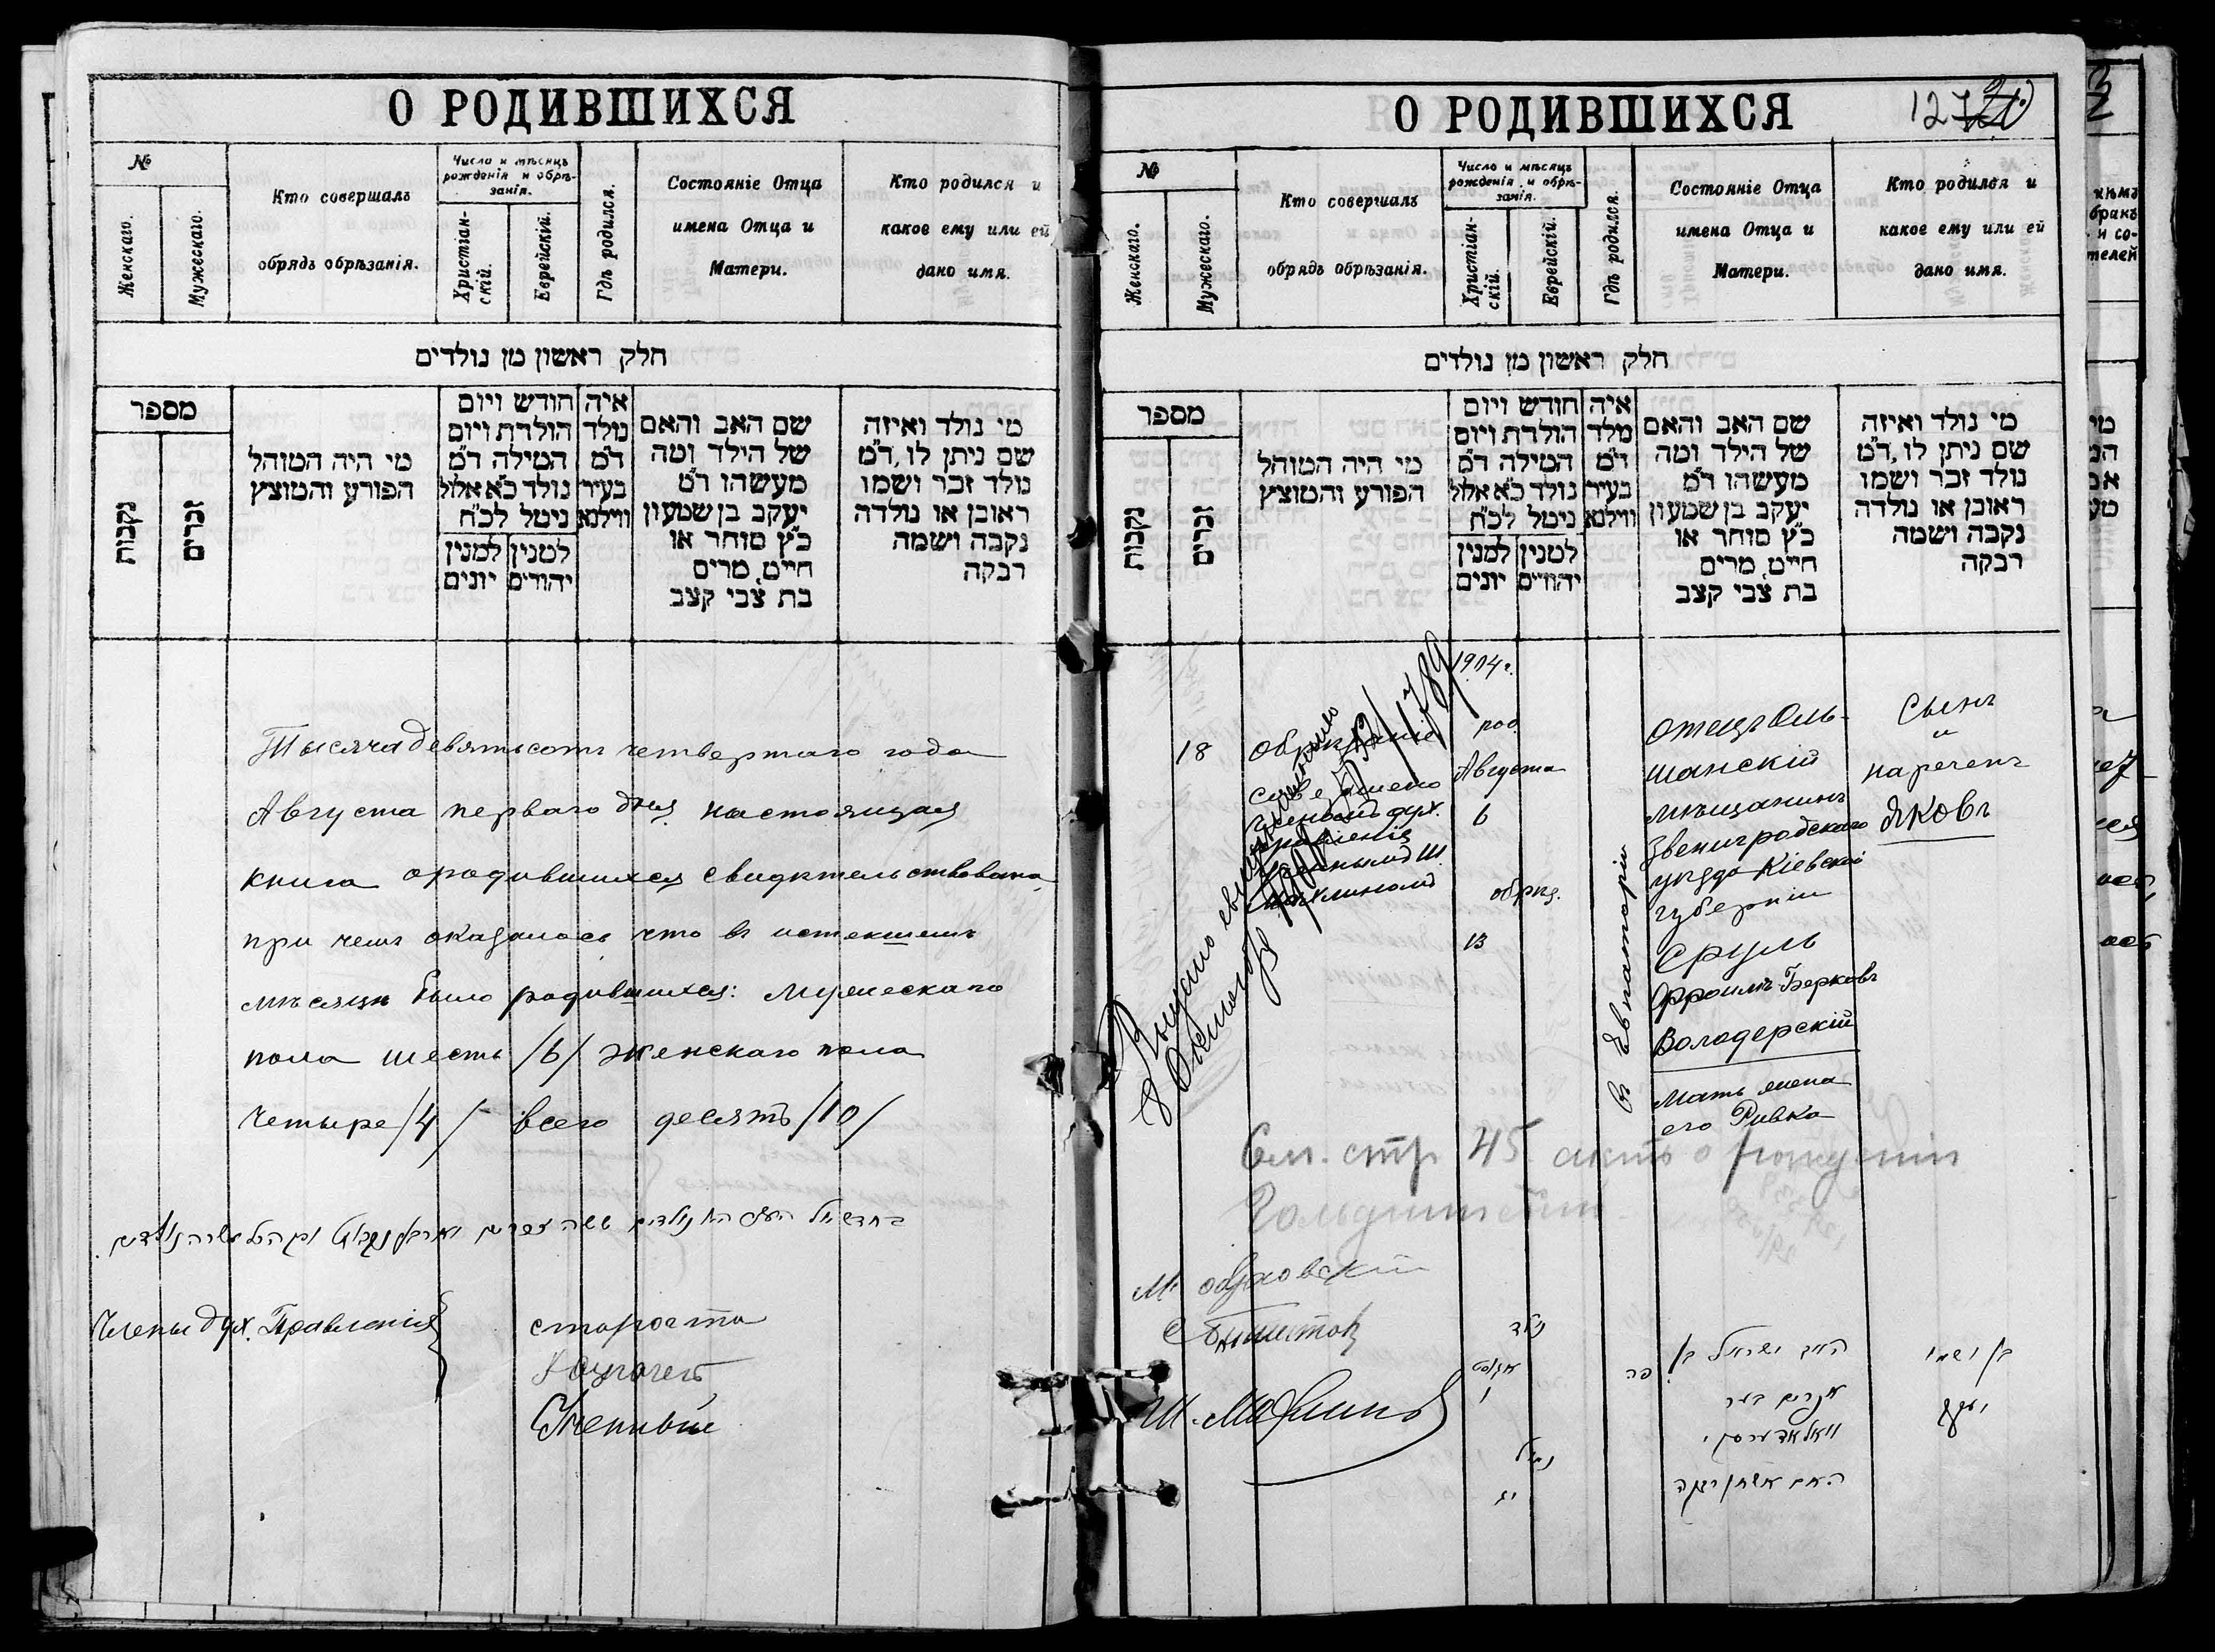 О РОДИВШИХСЯ
№
Женскаго.
Мужескаго.
Кто совершалъ
обрядъ обрѣзанія.
Числа и мѣсяцъ
рожденія и обрѣ-
занія.
Христіан-
скій.
Еврейскій.
Гдѣ родился.
Состояніе Отца
имена Отца и
Матери.
Кто родился и
какое ему или ей
дано имя.
חלק ראשון מן נולדים
מספר
נקבות
זכרים
מי היה המוהל
הפורע והמוצץ
חודש ויום
הולדת ויום
המילה ד"מ
נולד כ"א אלול
ניטל לכ"ח
למנין
יונים
למנין
יהודים
איה
נולד
ד"מ
בעיר
ווילנא
שם האב והאם
של הילד ומה
מעשהו ד"מ
יעקב בן שמעון
כ"ץ סוחר או
חייט, מרים
בת צבי קצב
מי נולד ואיזה
שם ניתן לו, ד"מ
נולד זכר ושמו
ראובן או נולדה
נקבה ושמה
רבקה
Тысяча девятьсотъ четвертаго года
Августа перваго дня настоящая
книга о родившихся свидѣтельствована
при чемъ оказалось что въ истекшемъ
мѣсяцѣ было родившихся: мужескаго
пола шесть /6/ женскаго пола
четыре /4/ всего десять /10/
Члены Дух. Правленія
староста
Казначей
Ученый
О РОДИВШИХСЯ
127
№
Женскаго.
Мужескаго.
Кто совершалъ
обрядъ обрѣзанія.
Число и мѣсяцъ
рожденія и обрѣ-
занія.
Христіан-
скій.
Еврейскій.
Гдѣ родился.
Состояніе Отца
имена Отца и
Матери.
Кто родился и
какое ему или ей
дано имя.
חלק ראשון מן נולדים
מספר
נקבות
זכרים
מי היה המוהל
הפורע והמוצץ
חודש ויום
הולדת ויום
המילה ד"מ
נולד כ"א אלול
ניטל לכ"ח
למנין
יונים
למנין
יהודים
איה
מלד
ד"מ
בעיר
ווילנא
שם האב והאם
של הילד ומה
מעשהו ד"מ
יעקב בן שמעון
כ"ץ סוחר או
חייט, מרים
בת צבי קצב
מי נולד ואיזה
שם ניתן לו, ד"מ
נולד זכר ושמו
ראובן או נולדה
נקבה ושמה
רבקה
18
Обрѣзаніе
совершено
дух.
правленія
Ш.
1904 г.
род.
Августа
6
обрѣз.
13
въ Евпаторіи
отецъ Оль-
шанскій
мѣщанинъ
Звенигродскаго
уѣзда Кіевской
губерніи
Сруль
Фроимъ Берковъ
Володерскій
мать жена
его Ривка
Сынъ
и
нареченъ
Яковъ
Выдано
См. стр 45 актъ о рожденіи
נולד
אוגוסט
נימול
יג
פה
האב ישראל בן
אפרים בער
וואלאדערסקי
האם אשתו רבקה
בן ושמו
יעקב